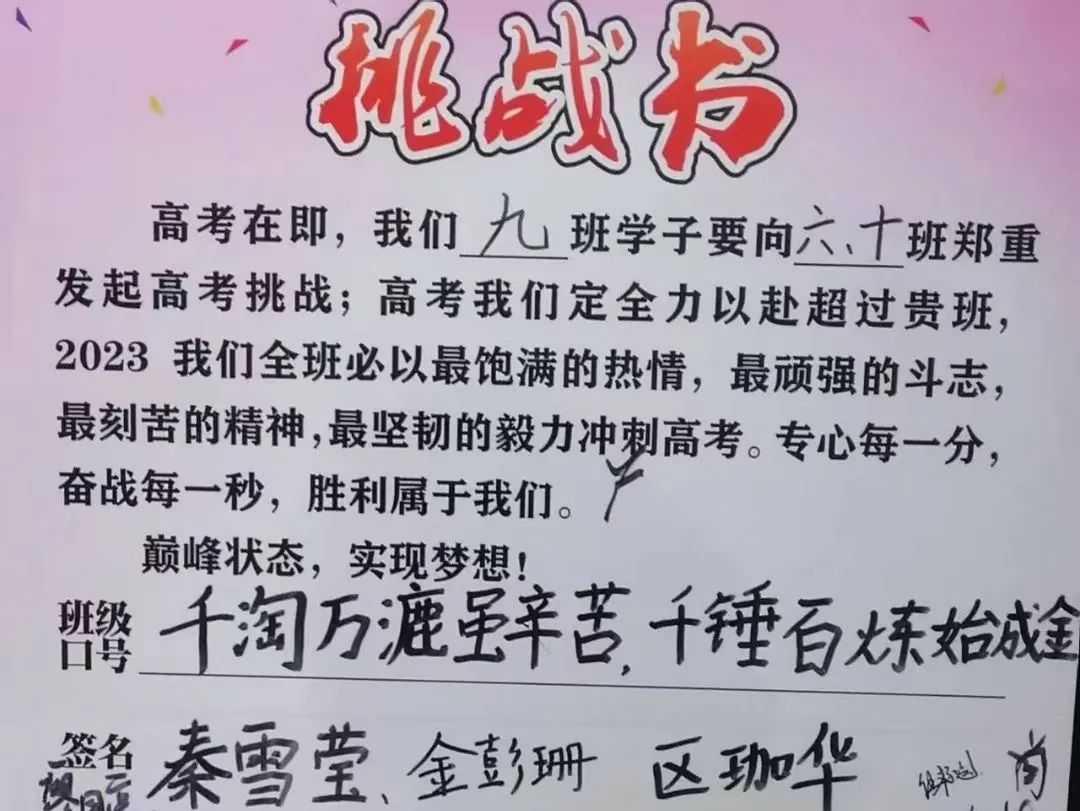 挑战书
高考在即，我们九班学子要向六、十班郑重
发起高考挑战；高考我们定全力以赴超过贵班，
2023 我们全班必以最饱满的热情，最顽强的斗志，
最刻苦的精神，最坚韧的毅力冲刺高考。专心每一分，
奋战每一秒，胜利属于我们。
巅峰状态，实现梦想！
班级口号 千淘万漉虽辛苦，千锤百炼始成金
签名 秦雪莹、金彭珊 区珈华